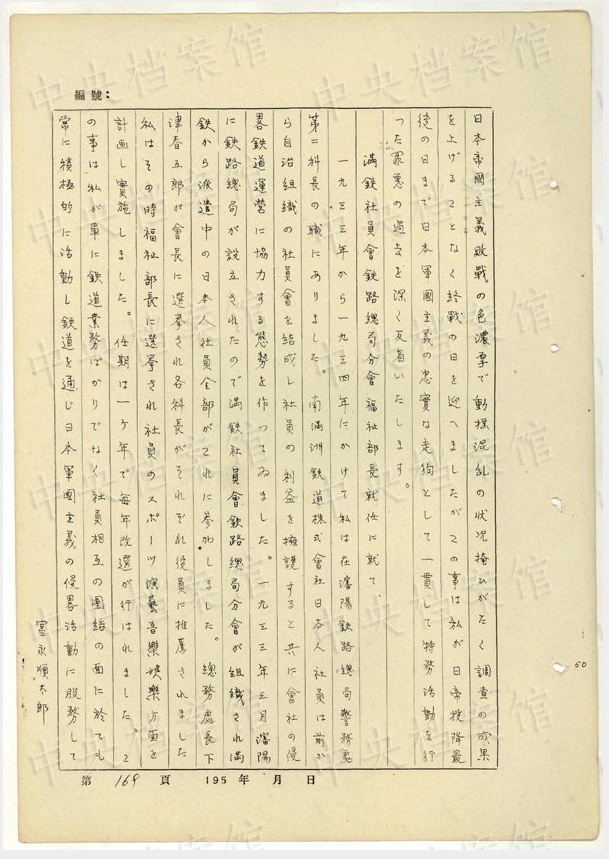 編號：
日本帝國主義敗戰の色濃厚で動揺混乱の状況掩ひがたく調査の成果
を上げることなく終戰の日を迎へましたがこの事は私が日帝投降最
後の日まで日本軍國主義の忠實な走狗として一貫して特務活動を行
った罪悪の過去を深く反省いたします。
満鉄社員會鉄路總局分會福祉部長就任に就て、
一九三三年から一九三四年にかけて私は在瀋陽鉄路總局警務處
第二科長の職にありました。南満洲鉄道株式會社日本人社員は前か
ら自治組織の社員會を結成し社員の利益を擁護すると共に會社の侵
畧鉄道運営に協力する態勢を作ってゐました。一九三三年三月瀋陽
に鉄路總局が設立されたので満鉄社員會鉄路總局分會が組織され満
鉄から派遣中の日本人社員全部がこれに参加しました。總務處長下
津春五郎が會長に選挙され各科長がそれぞれ役員に推薦されました
私はその時福祉部長に選挙され社員のスポーツ演藝音樂娯樂方面を
計画し實施しました。任期は一ヶ年で毎年改選が行はれました。こ
の事は私が單に鉄道業務ばかりでなく社員相互の團結の面に於ても
常に積極的に活動し鉄道を通じ日本軍國主義の侵畧活動に服務して
富永順太郎
50
第 169 頁 195 年 月 日
中央档案馆